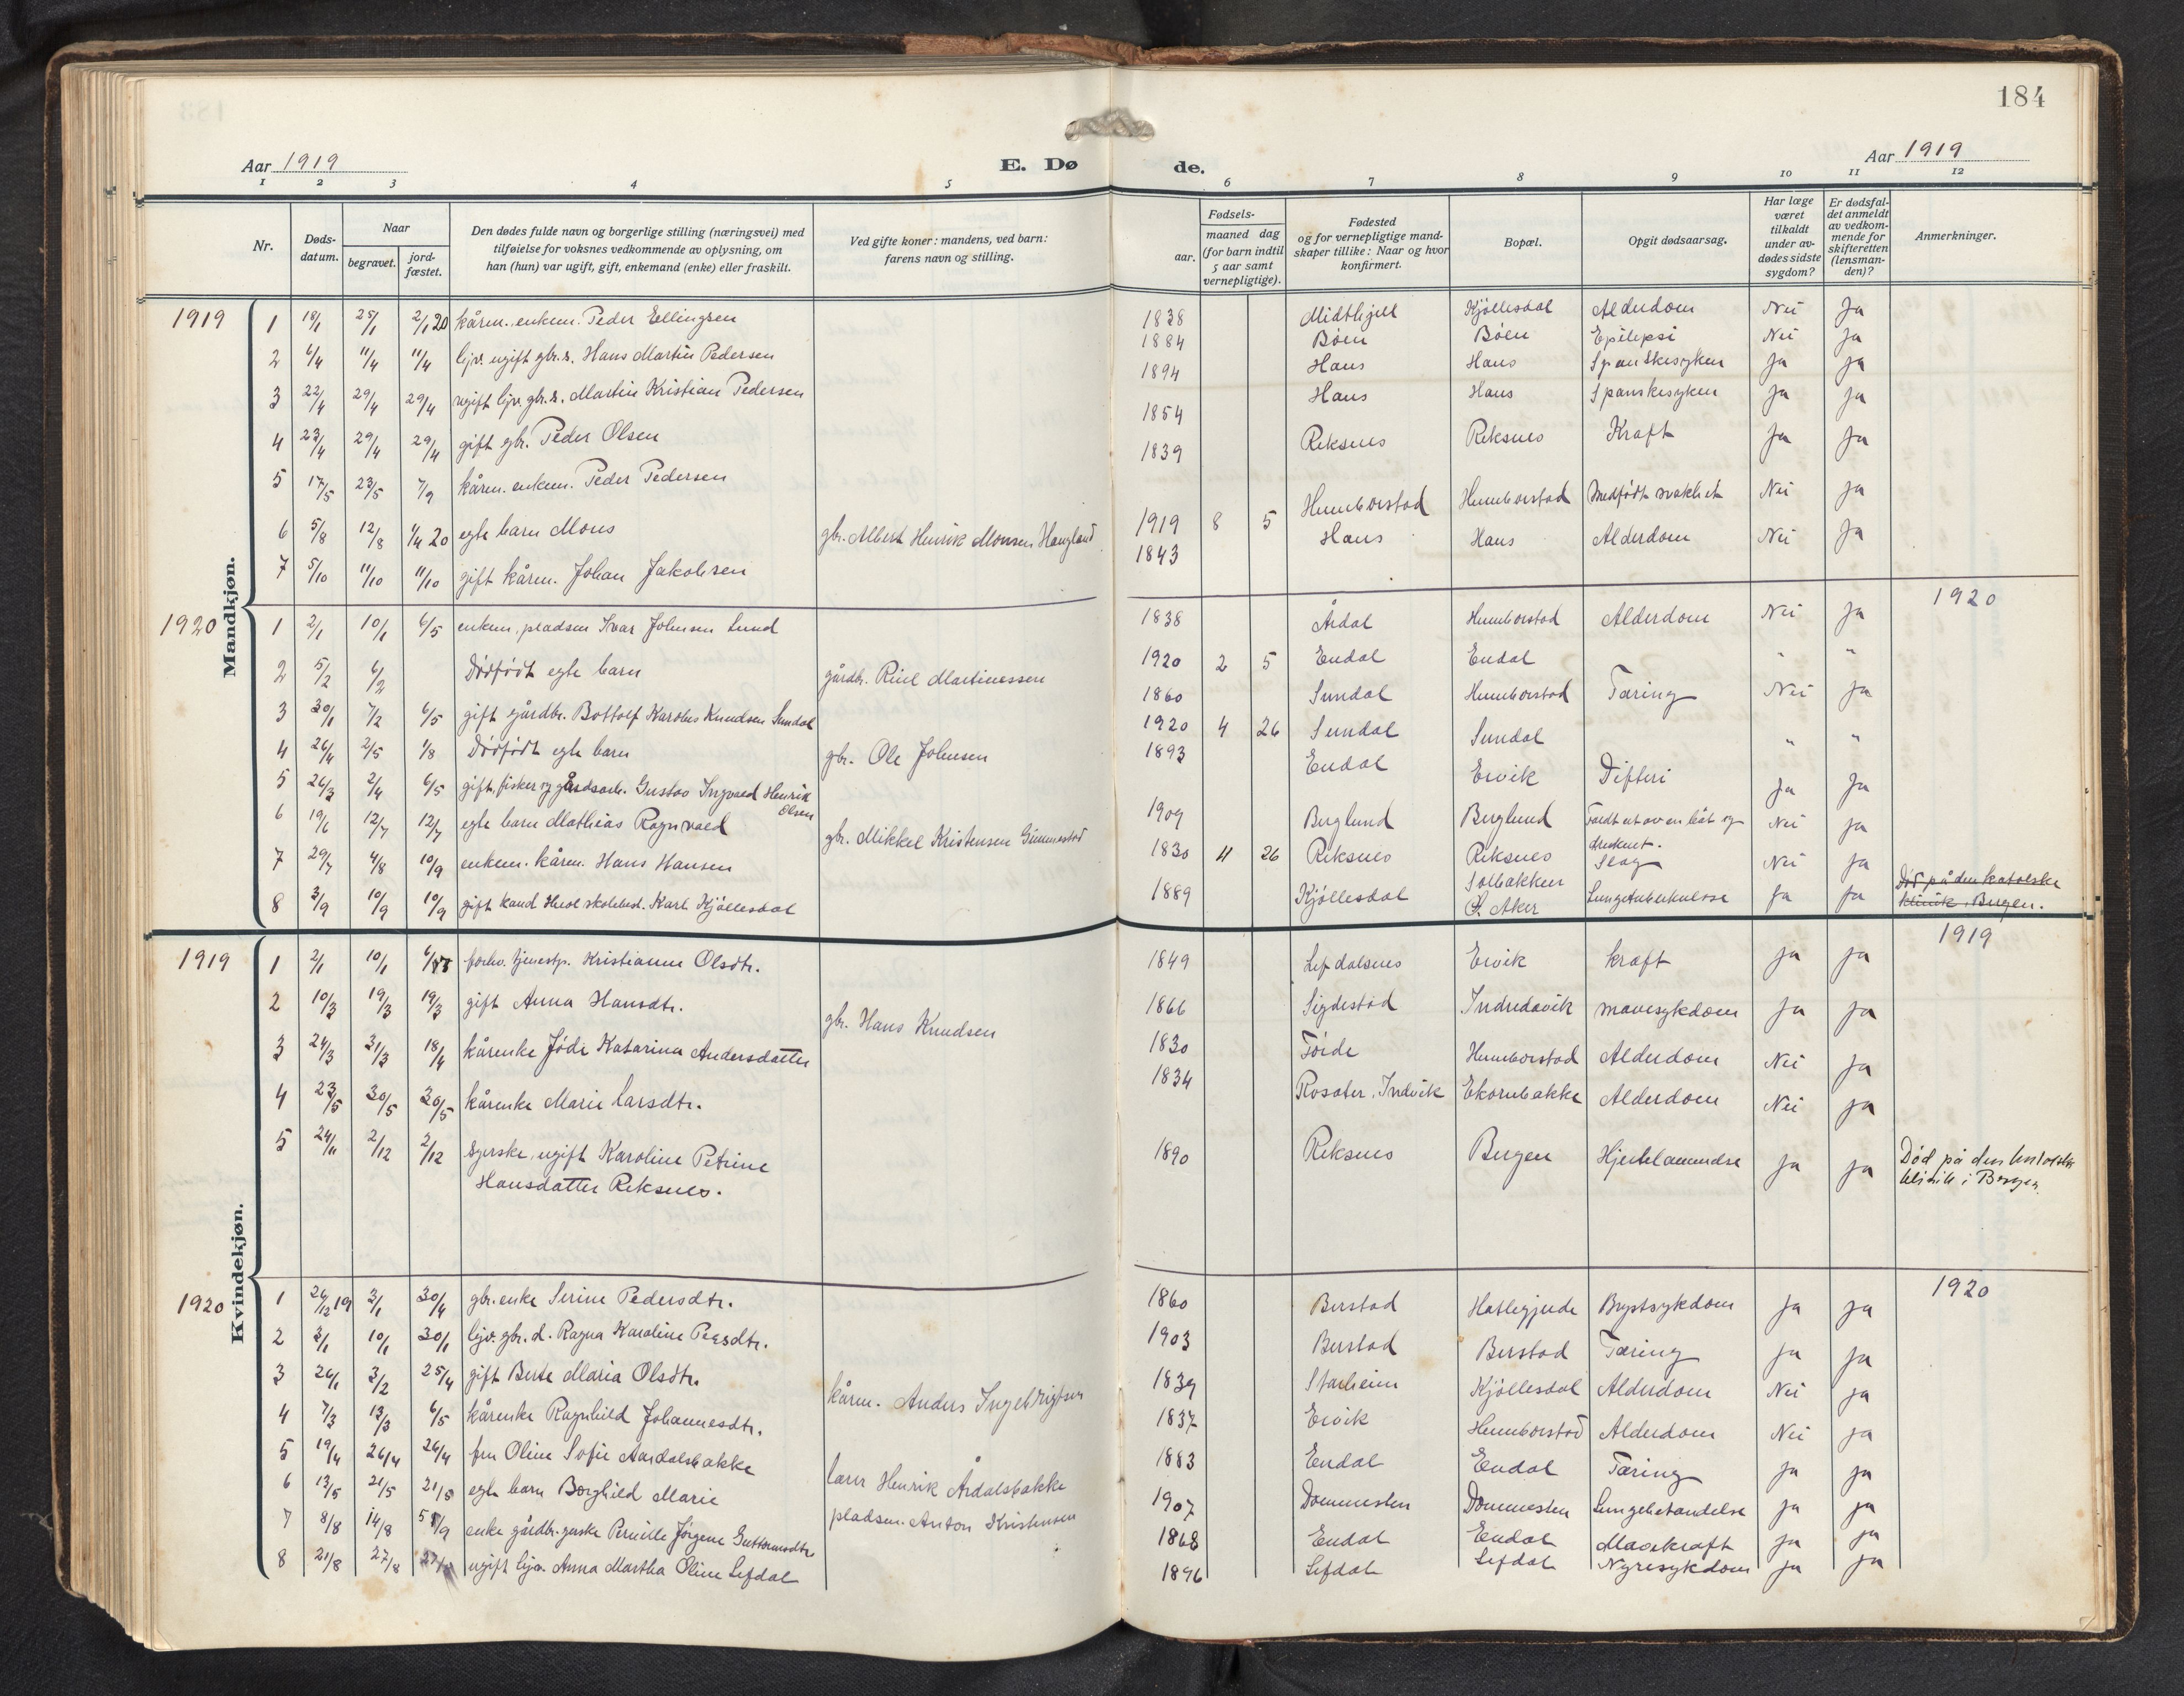 184
Aar 1919
E. Dø
de.
Aar 1919
1 2 3 4 5 6 7 8 9 10 11 12
Nr.
Døds-
datum.
Naar
begravet.
jord-
fæstet.
Den dødes fulde navn og borgerlige stilling (næringsvei) med
tilføielse for voksnes vedkommende av oplysning, om
han (hun) var ugift, gift, enkemand (enke) eller fraskilt.
Ved gifte koner: mandens, ved barn:
farens navn og stilling.
Fødsels-
aar.
maaned dag
(for barn indtil
5 aar samt
vernepligtige).
Fødested
og for vernepligtige mand-
skaper tillike: Naar og hvor
konfirmert.
Bopæl.
Opgit dødsaarsag.
Har læge
været
tilkaldt
under av-
dødes sidste
sygdom?
Er dødsfal-
det anmeldt
av vedkom-
mende for
skifteretten
(lensman-
den)?
Anmerkninger.
Mandkjøn.
1919
1 18/1 25/1 2/1 20 kårm. enkem. Peder Ellingsen 1838 Midthjell Kjöllesdal Alderdom Nei Ja
2 6/4 11/4 11/4 ljv. ugift gbr.s. Hans Martin Pedersen 1884 Böen Böen Epilepsi Nei Ja
3 22/4 29/4 29/4 ugift ljv. gbr.s. Martin Kristian Pedersen 1894 Haus Haus Spanskesyken Ja Ja
4 23/4 29/4 29/4 gift gbr. Peder Olsen 1854 Haus Haus Spanskesyken Ja Ja
5 17/5 23/5 7/9 kårm. enkem. Peder Pedersen 1839 Reksnes Reksnes Kræft Ja Ja
6 5/8 12/8 1/4 20 egte barn Mons gbr. Albert Henrik Monsen Haugland 1919 8 5 Humborstad Humborstad Medfödt svakhet Nei Ja
7 5/10 11/10 11/10 gift kårm. Johan Jakobsen 1843 Haus Haus Alderdom Nei Ja
1920
1920
1 2/1 10/1 6/5 enkem. pladsm Ivar Johnsen Lund 1838 Årdal Humborstad Alderdom Nei Ja
2 5/2 6/2 Dödfödt egte barn gårdbr. Martinessen 1920 2 5 Endal Endal " "
3 30/1 7/2 6/5 gift gårdbr. Bottolf Karolus Knudsen Sundal 1860 Sundal Humborstad Tæring Nei Ja
4 26/4 2/5 1/8 Dödfödt egte barn gbr. Ole Johnsen 1920 4 26 Sundal Sundal " "
5 26/3 2/4 6/5 gift, fisker og gårdsarb. Gustav Ingvald Henrik
Olsen 1893 Endal Ervik Difteri Ja Ja
6 19/6 12/7 12/7 egte barn Mathias Ragnvald gbr. Mikkel Kristensen Gimmestad 1909 Berglund Berglund Faldt ut av en båt og
druknet. Nei Ja
7 29/7 4/8 10/9 enkem. kårm. Hans Hansen 1830 11 26 Reksnes Reksnes Slag Nei Ja
8 3/9 10/9 10/9 gift kand theol skolebest. Karl Kjöllesdal 1889 Kjöllesdal Solbakken
Ö. Aker Lungetuberkulose Ja Ja Död på den katolske
klinik i Bergen.
Kvindekjøn.
1919
1919
1 2/1 10/1 forhv. tjenestp. Kristianne Olsdtr. 1849 Lefdalsnes Ervik kræft Ja Ja
2 10/3 19/3 19/3 gift Anna Hansdtr. gbr. Hans Knudsen 1866 Sigdestad Indredavik mavesykdom Ja Ja
3 24/3 31/3 18/4 kårenke Jödi Katarina Andersdatter 1830 Förde Humborstad Alderdom Nei Ja
4 23/5 30/5 30/5 kårenke Marie Larsdtr. 1834 Rosater. Indvik Ekornbakke Alderdom Nei Ja
5 24/11 2/12 2/12 syerske, ugift Karoline Petrine
Hansdatter Reksnes. 1890 Reksnes Bergen Hjertelammelse Ja Ja Död på den katolske
klinik i Bergen.
1920
1920
1 26/12 19 3/1 30/4 gbr. enke Serine Pedersdtr. 1860 Berstad Hatlegjerde Brystsykdom Ja Ja
2 3/1 10/1 30/1 ljv. gbr. d. Ragna Karoline Peersdtr. 1903 Berstad Berstad Tæring Ja Ja
3 26/1 3/2 25/4 gift Berte Maria Olsdtr. kårm. Anders Ingebrigtsen 1839 Starheim Kjöllesdal Alderdom Nei Ja
4 7/3 13/3 6/5 kårenke Ragnhild Johannesdtr. 1837 Ervik Humborstad Alderdom Nei Ja
5 19/4 26/4 26/4 fru Oline Sofie Aardalsbakke lærer Henrik Årdalsbakke 1883 Endal Endal Tæring Ja Ja
6 13/5 21/5 21/5 egte barn Borghild Marie pladsm. Anton Kristensen 1907 Dommesten Dommesten Lungebetændelse Ja Ja
7 8/8 14/8 5/9 enke gårdbr.gerske Pernille Jörgene Guttormsdtr. 1868 Endal Endal Mavekræft Ja Ja
8 21/8 27/8 27/8 ugift ljv. Anna Martha Oline Lefdal 1896 Lefdal Lefdal Nyresykdom Ja Ja